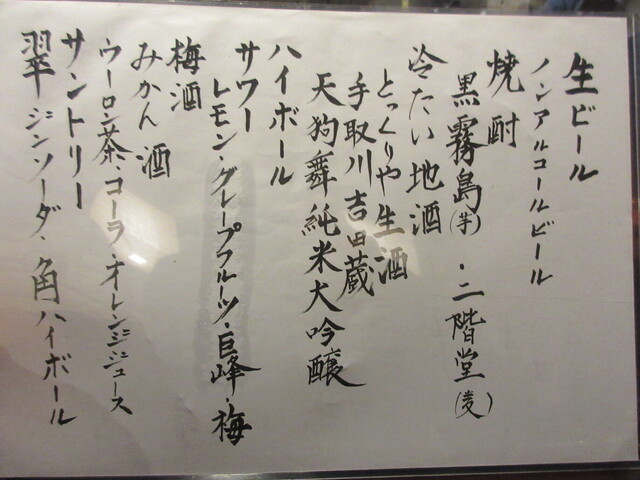 生ビール
ノンアルコールビール
焼酎
黒霧島(芋)・二階堂(麦)
冷たい地酒
とっくりや生酒
手取川吉田蔵
天狗舞純米大吟醸
ハイボール
サワー
レモン・グレープフルーツ・巨峰・梅
梅酒
みかん酒
ウーロン茶・コーラ・オレンジジュース
サントリー
翠ジンソーダ・角ハイボール